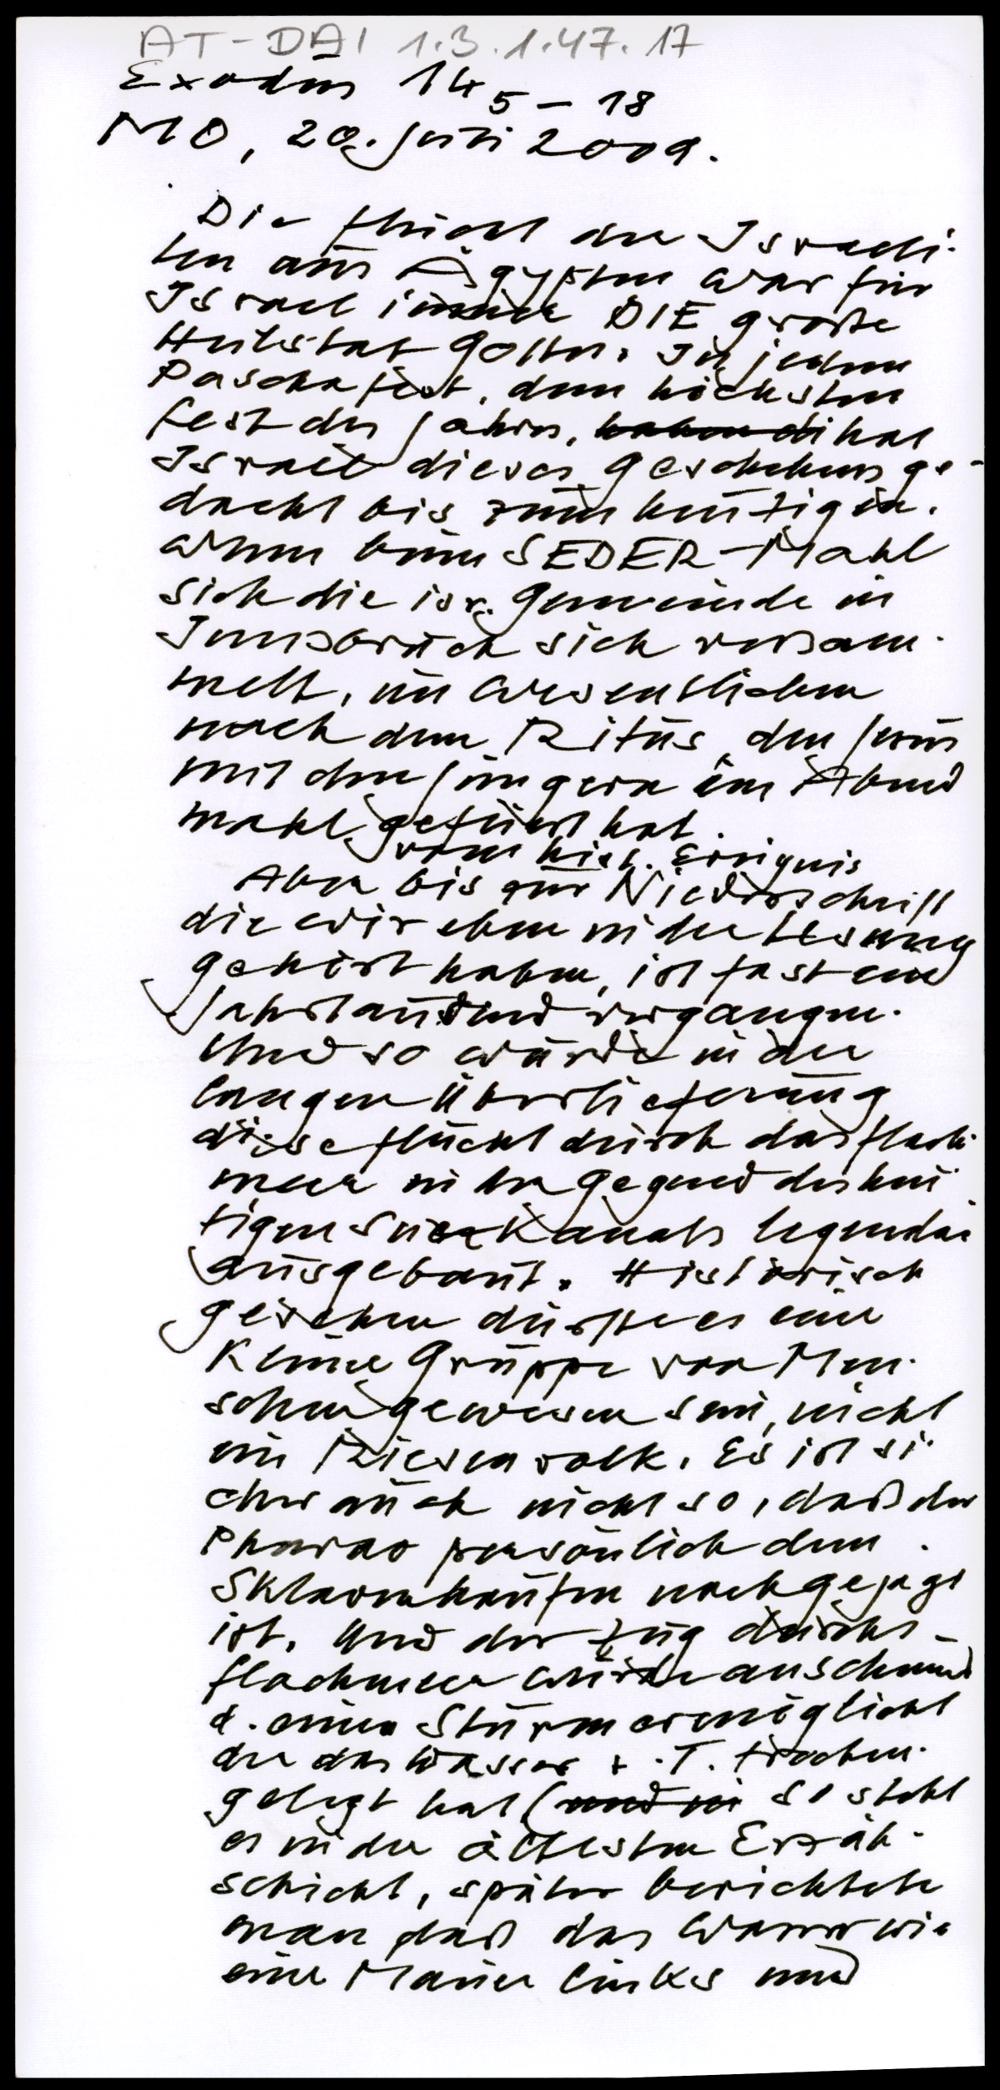 AT-DAI 1.3.1.47.17
Exodus 14 5-18
MO, 20. Juli 2009.
Die Flucht der Israeli-
ten aus Ägypten war für
Israel immer DIE große
Heilstat Gottes. In jedem
Paschafest, dem höchsten
Fest des Jahres, haben di hat
Israel dieses Geschehens ge-
dacht bis zum heutigen.
Wenn beim SEDER-Mahl
sich die isr. Gemeinde in
Innsbruck sich versam-
melt, im Wesentlichen
nach dem Ritus, den Jesus
mit den Jüngern im Abend
mahl gefeiert hat.
vom hist. Ereignis
Aber bis zur Niederschrift
die wir eben in der Lesung
gehört haben, ist fast ein
Jahrtausend vergangen.
Und so wurde in der
langen Überlieferung
diese Flucht durch das flache
meer in der Gegend des heu
tigen Suezkanals legendär
ausgebaut. Historisch
gesehen dürfte es eine
kleine Gruppe von Men-
schen gewesen sein, nicht
ein Riesenvolk. Es ist si-
cher auch nicht so, daß der
Pharao persönlich dem
Sklavenhaufen nachgejagt
ist. Und der Zug durchs
Flachmeer wurde anscheinend
d. einen Sturm ermöglicht
der das Wasser z.T. trocken-
gelegt hat (und in so steht
es in der ältesten Erzäh-
schicht, später berichtete
man daß das Wasser wie
eine Mauer links und